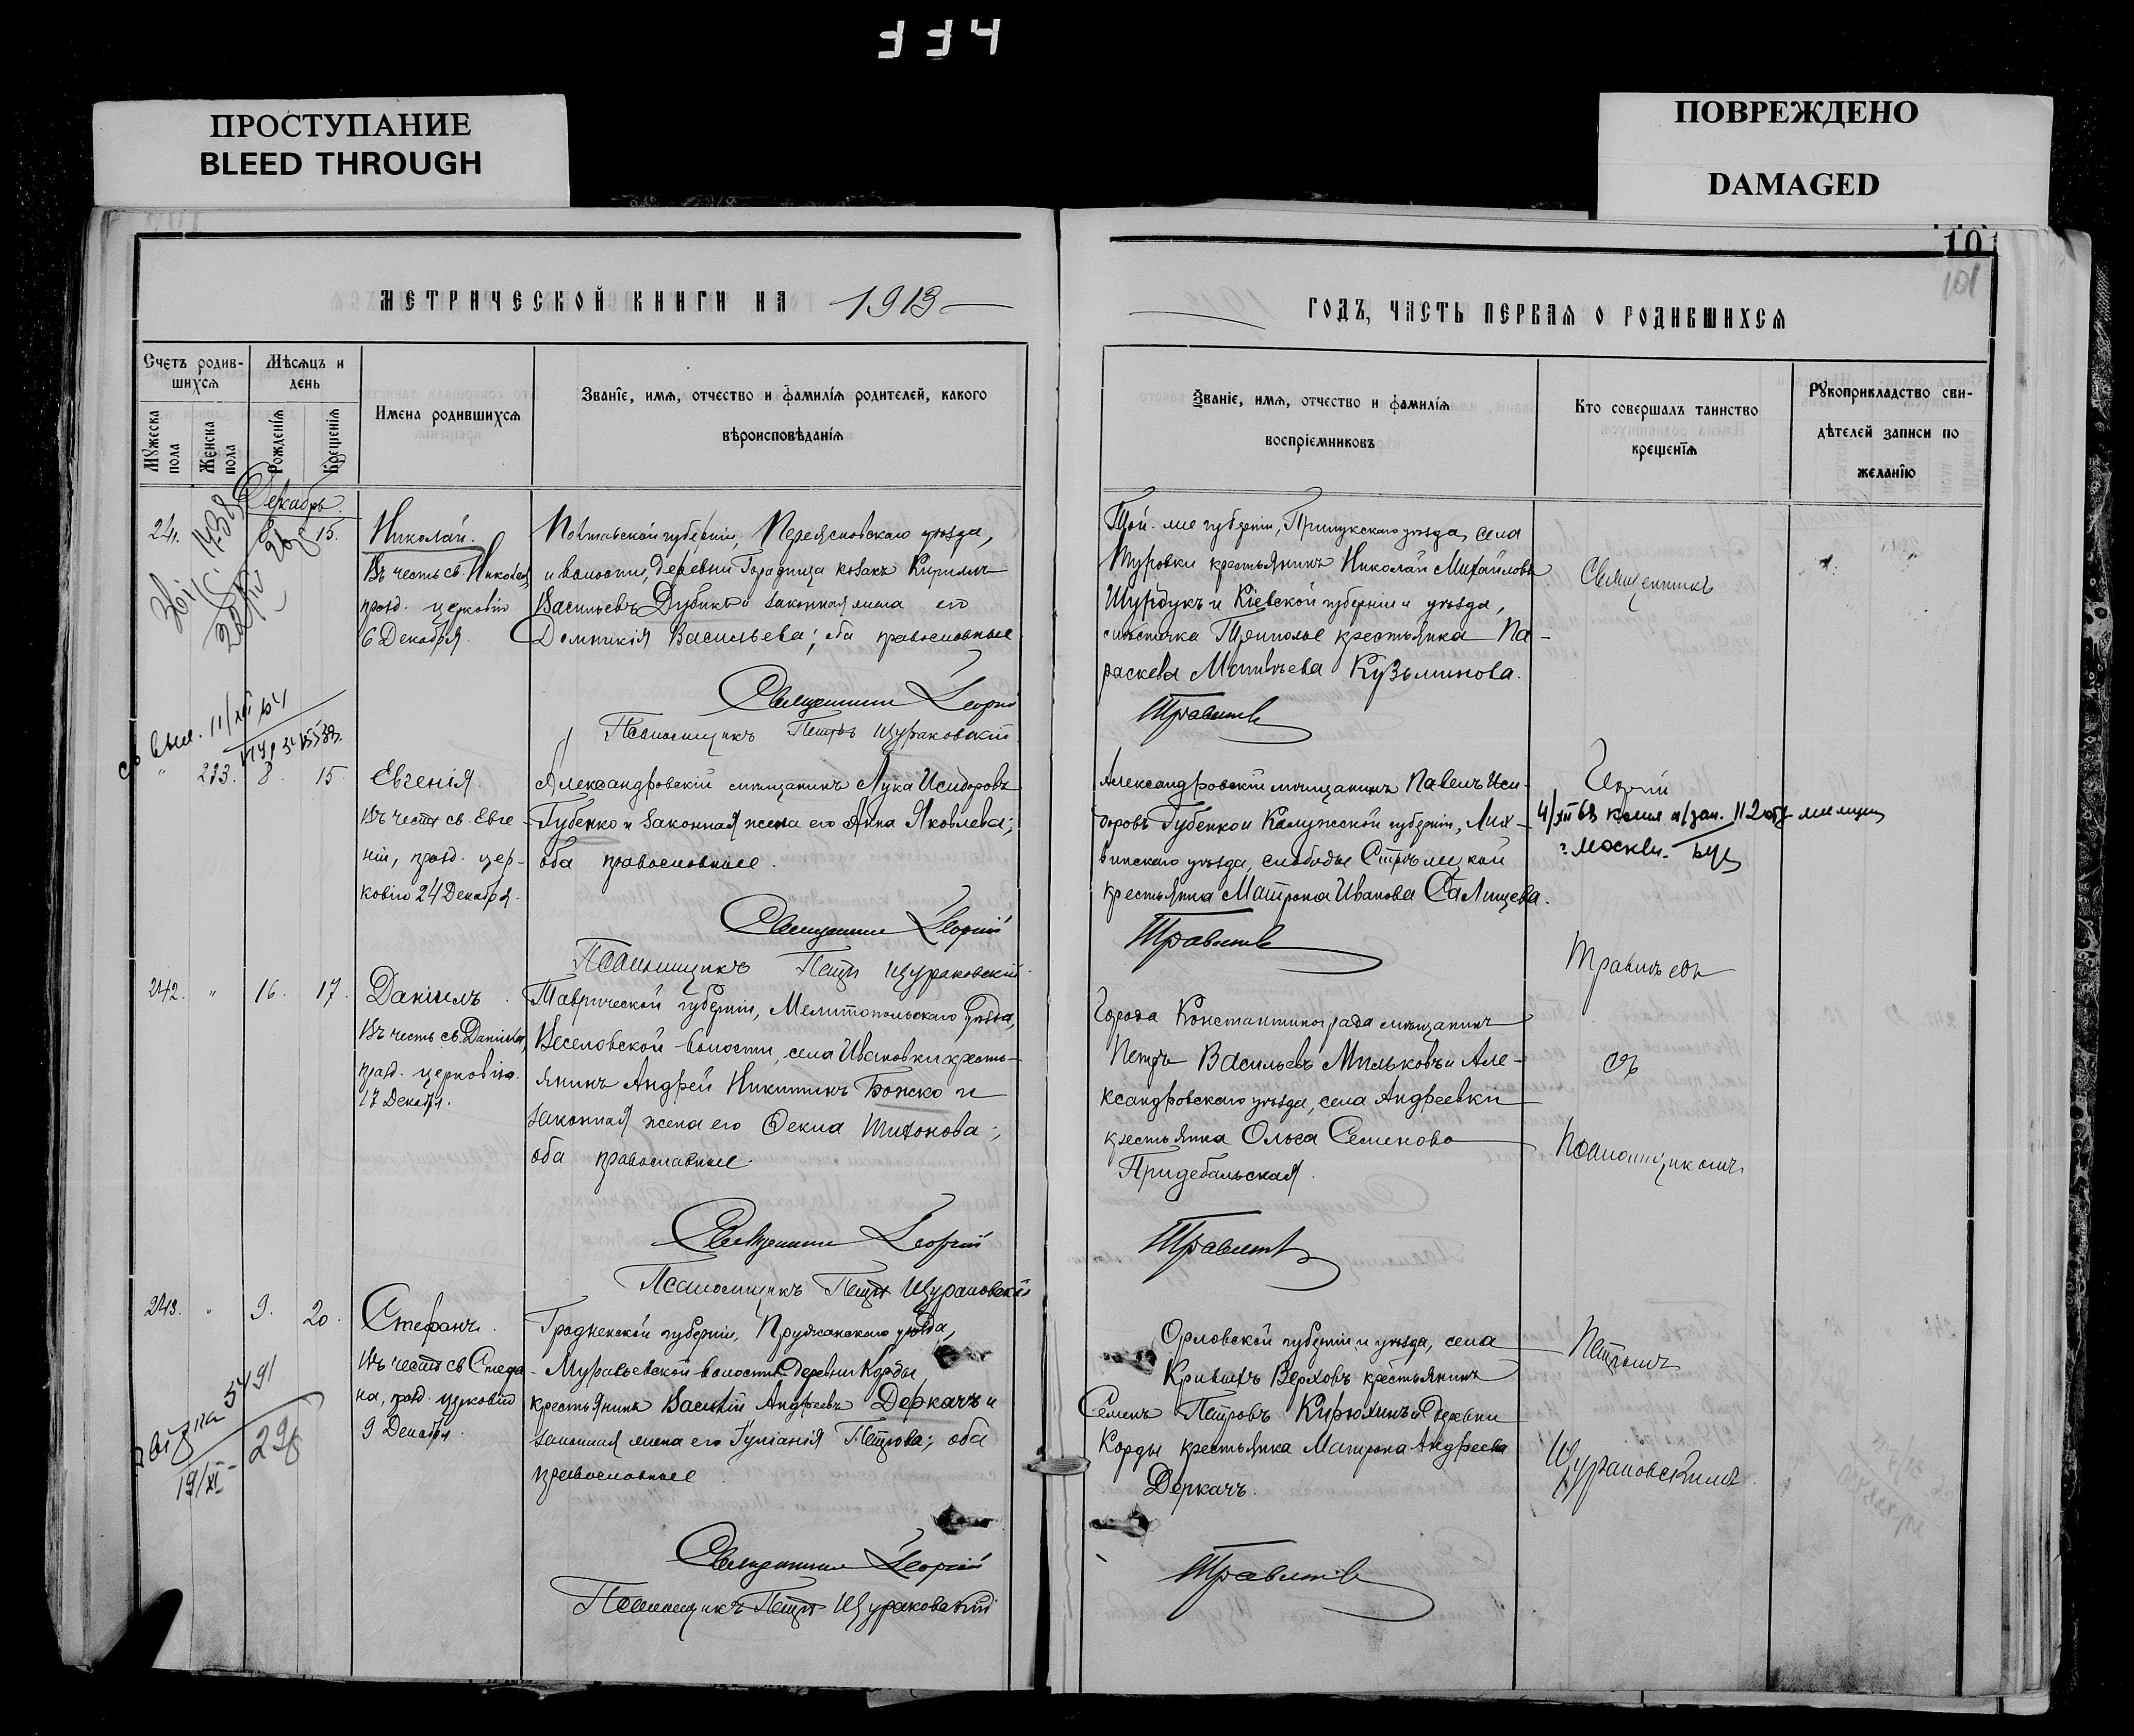 334
ПРОСТУПАНИЕ
BLEED THROUGH
ПОВРЕЖДЕНО
DAMAGED
101
101
МЕТРИЧЕСКОЙ КНИГИ НА 1913
ГОДЪ, ЧАСТЬ ПЕРВАЯ О РОДИВШИХСЯ
Счетъ родив-
шихся
Мѣсяцъ и
день
Мужеска
пола
Женска
пола
Рожденія
Крещенія
Имена родившихся
Званіе, имя, отчество и фамилія родителей, какого
вѣроисповѣданія
Званіе, имя, отчество и фамилія
воспріемниковъ
Кто совершалъ таинство
крещенія
Рукоприкладство сви-
дѣтелей записи по
желанію
Декабрь.
15.
Николай.
Въ честь св. Николая,
празд. церковію
6 Декабря.
Полтавской губерніи, Переясловскаго уѣзда,
и волости, деревни Городища козакъ Кириллъ
Васильевъ Дубина и законная жена его
Домникія Васильева; оба православные
Священникъ Георгій
Псаломщикъ Петръ Щураковскій
Той-же губерніи, Прилукскаго уѣзда, села
Туровки крестьянинъ Николай Михайловъ
и Кіевской губерніи и уѣзда,
мѣстечка Триполье крестьянка Па-
раскева Матвѣева Кузьминова.
Травлевъ
Священникъ
273. 8. 15.
Евгенія.
Въ честь св. Евге-
ніи, празд. цер-
ковію 24 Декабря.
Александровскій мѣщанинъ Лука Исидоровъ
Губенко и законная жена его Анна Яковлева;
оба православные.
Священникъ Георгій
Псаломщикъ Петръ Щураковскій
Александровскій мѣщанинъ Павелъ Иси-
доровъ Губенко и Калужской губерніи, Лих-
винскаго уѣзда, слободы Стрѣлецкой
крестьянка Матрона Иванова Салищева.
Травлевъ
Георгій
г. Москвы.
242. " 16. 17.
Даніилъ.
Въ честь св. Даніила,
празд. церковію.
17 Декабря.
Таврической губерніи, Мелитопольскаго уѣзда,
Веселовской волости, села Ивановки кресть-
янинъ Андрей Никитинъ Божко и
законная жена его Фекла Тихонова;
оба православные.
Священникъ Георгій
Псаломщикъ Петръ Щураковскій
Города Константинограда мѣщанинъ
Петръ Васильевъ Мильковъ и Але-
ксандровскаго уѣзда, села Андреевки
крестьянка Ольга Семенова
Придебальская.
Травлевъ
съ
Псаломщикомъ
243. " 9. 20.
Стефанъ.
Въ честь св. Стефа-
на, празд. церковію
9 Декабря.
Гродненской губерніи, Пружанскаго уѣзда,
Муравьевской волости деревни Корды
крестьянинъ Василій Андреевъ Деркачъ и
законная жена его Іуліанія Петрова; оба
православные
Священникъ Георгій
Псаломщикъ Петръ Щураковскій
Орловской губерніи и уѣзда, села
Кривыхъ Верховъ крестьянинъ
Семенъ Петровъ Кирюхинъ и деревни
Корды крестьянка Матрона Андреева
Деркачъ.
Травлевъ
Петромъ
Щураковскимъ.